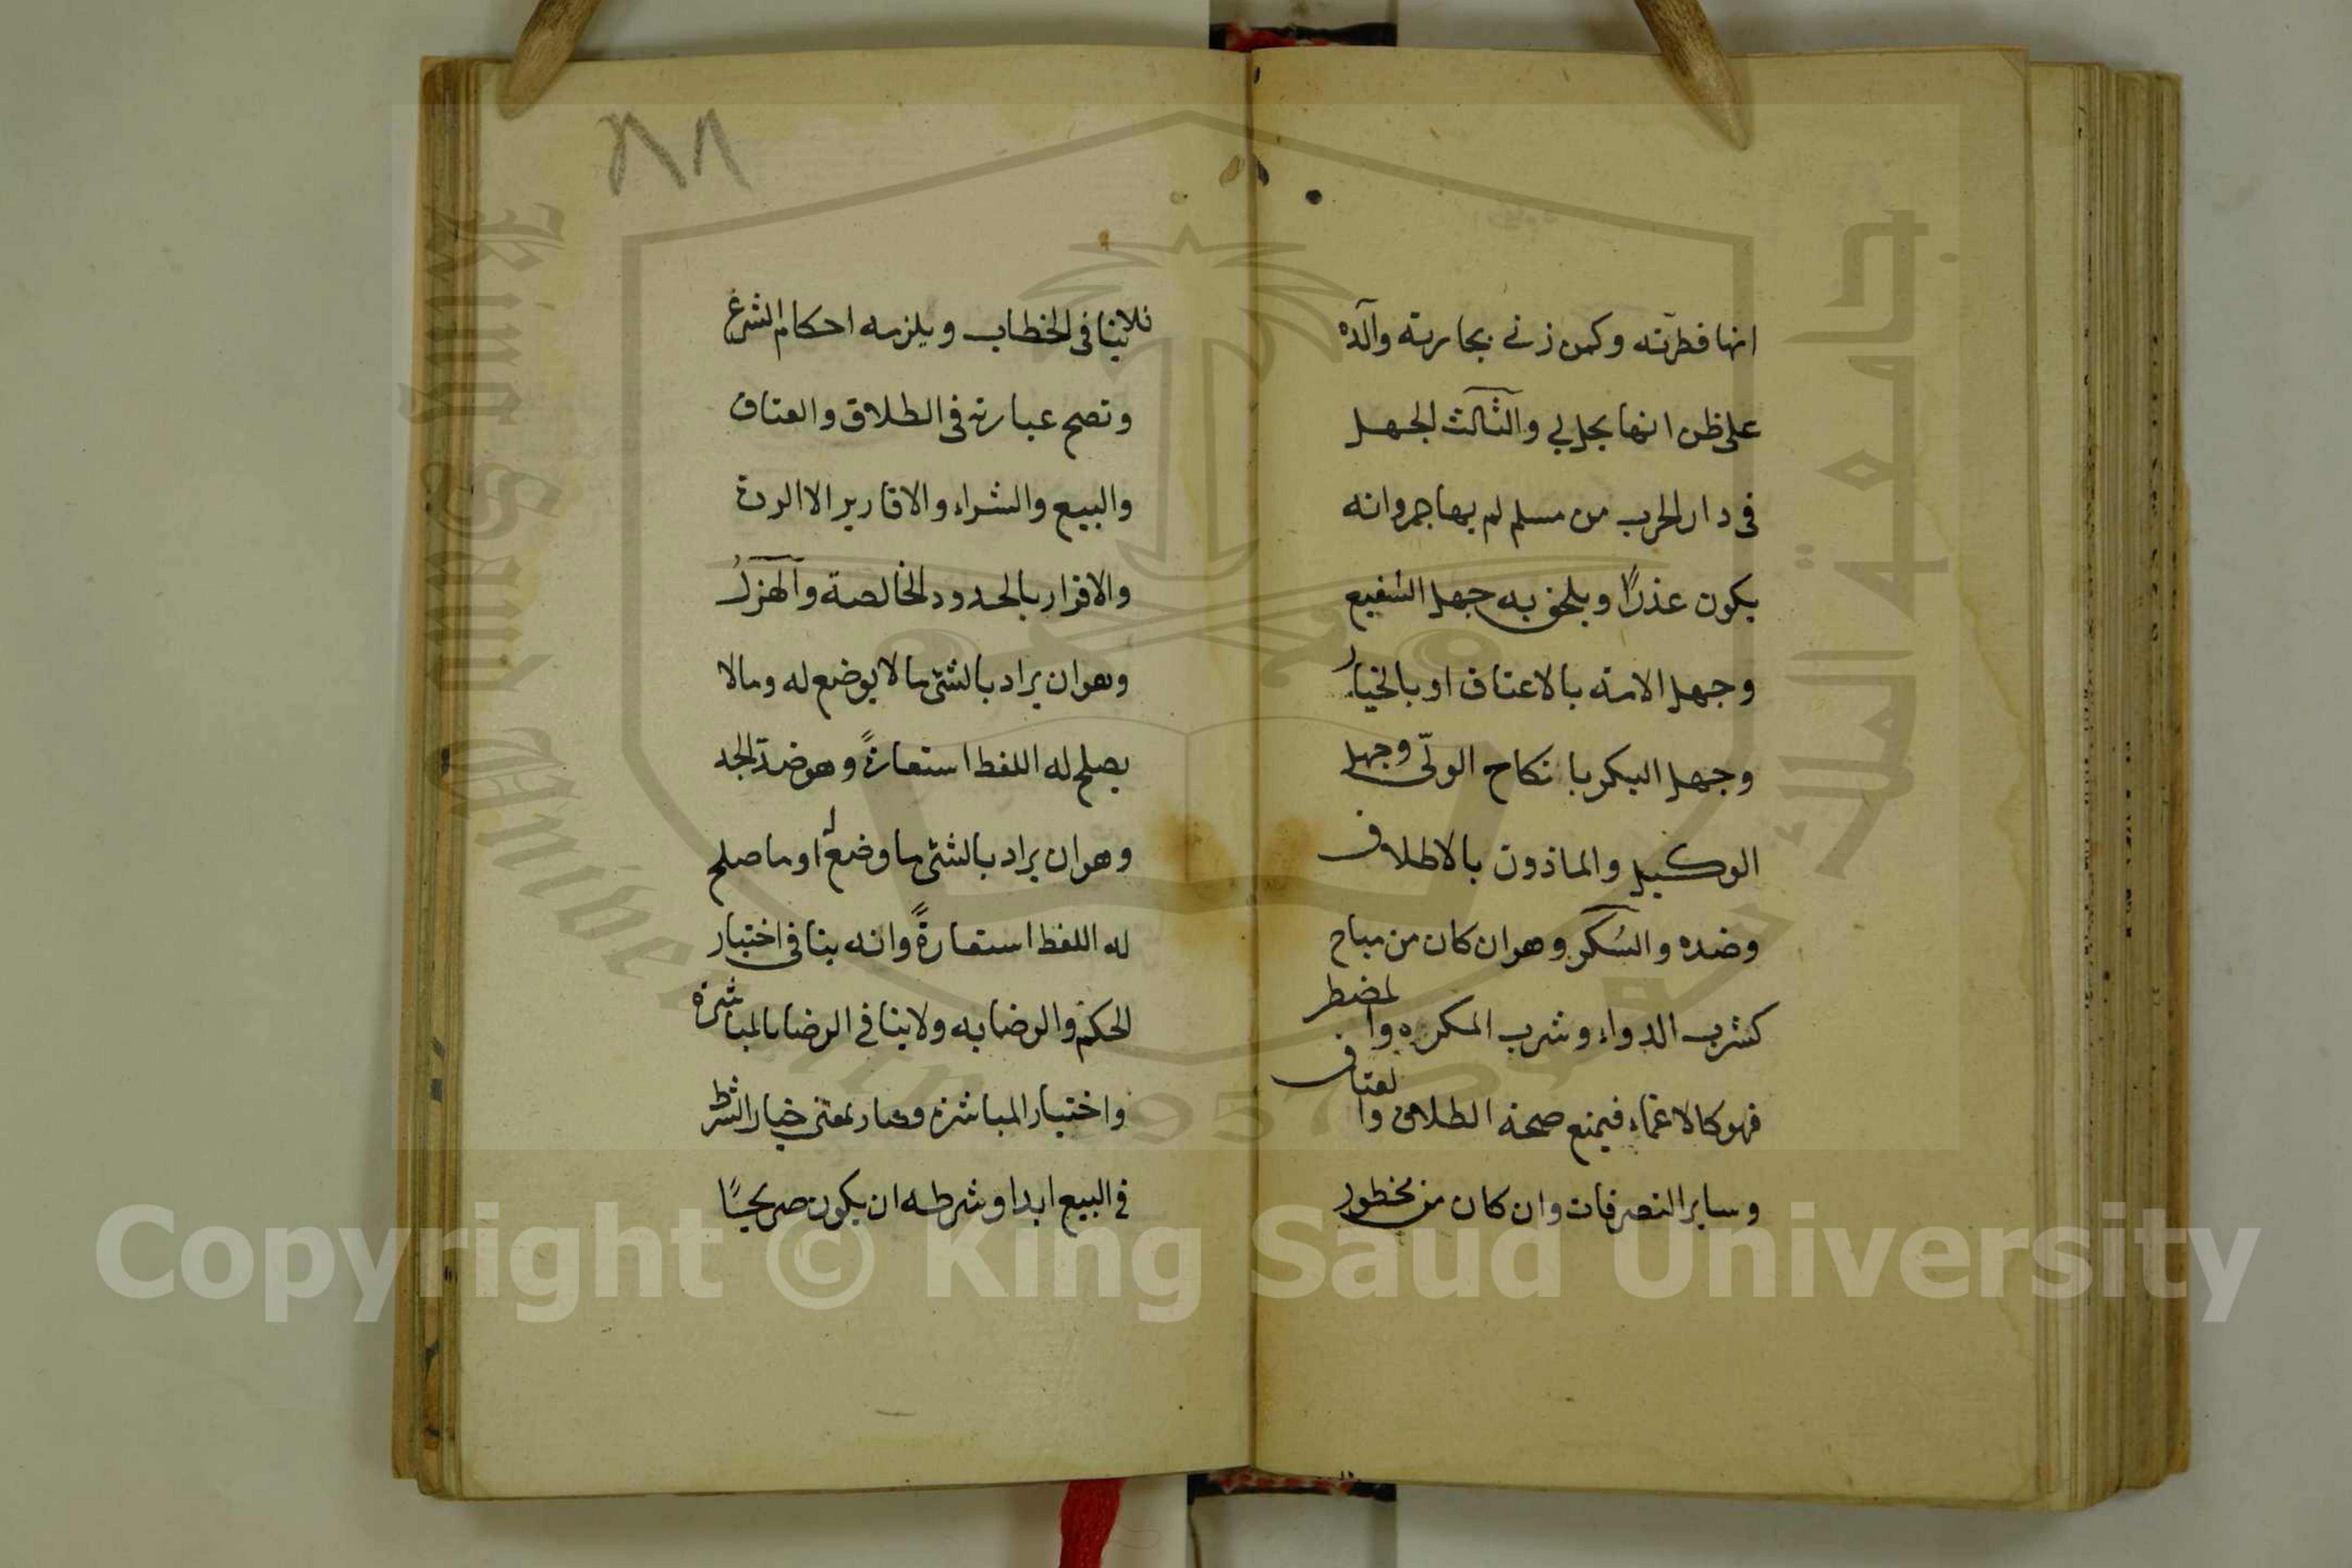 انها فطرته وكمن زنى بجارية والده
على ظن انها تحل لي والثالث الجهل
فى دار الحرب من مسلم لم يهاجر وانه
يكون عذرًا ويلحق به جهل الشفيع
وجهل الامة بالاعتاق او بالخيار
وجهل البكر بانكاح الولّى وجهل
الوكيل والماذون بالاطلاق
وضده والسُكر وهو ان كان من مباح
كشرب الدواء وشرب المكره والمضطر
فهو كالاغماء فيمنع صحة الطلاق والعتاق
وساير التصرفات وان كان من محظور
٨٨
فلا ينافى الخطاب ويلزمه احكام الشرع
وتصح عبارته فى الطلاق والعتاق
والبيع والشراء والاقارير الا الردة
والاقرار بالحدود الخالصة والهزلُ
وهو ان يراد بالشئ ما لا يوضع له ومالا
يصلح له اللفظ استعارةً وهو ضد الجد
وهو ان يراد بالشئ ما وضع له او ما صلح
له اللفظ استعارةً وانه ينافى اختيار
الحكم والرضا به ولا ينافي الرضا بالمباشرة
واختيار المباشرة وصار بمعنى خيار الشرط
في البيع ابدا وشرطه ان يكون صريحًا
جامعة الملك سعود
King Saud University
1957
Copyright © King Saud University